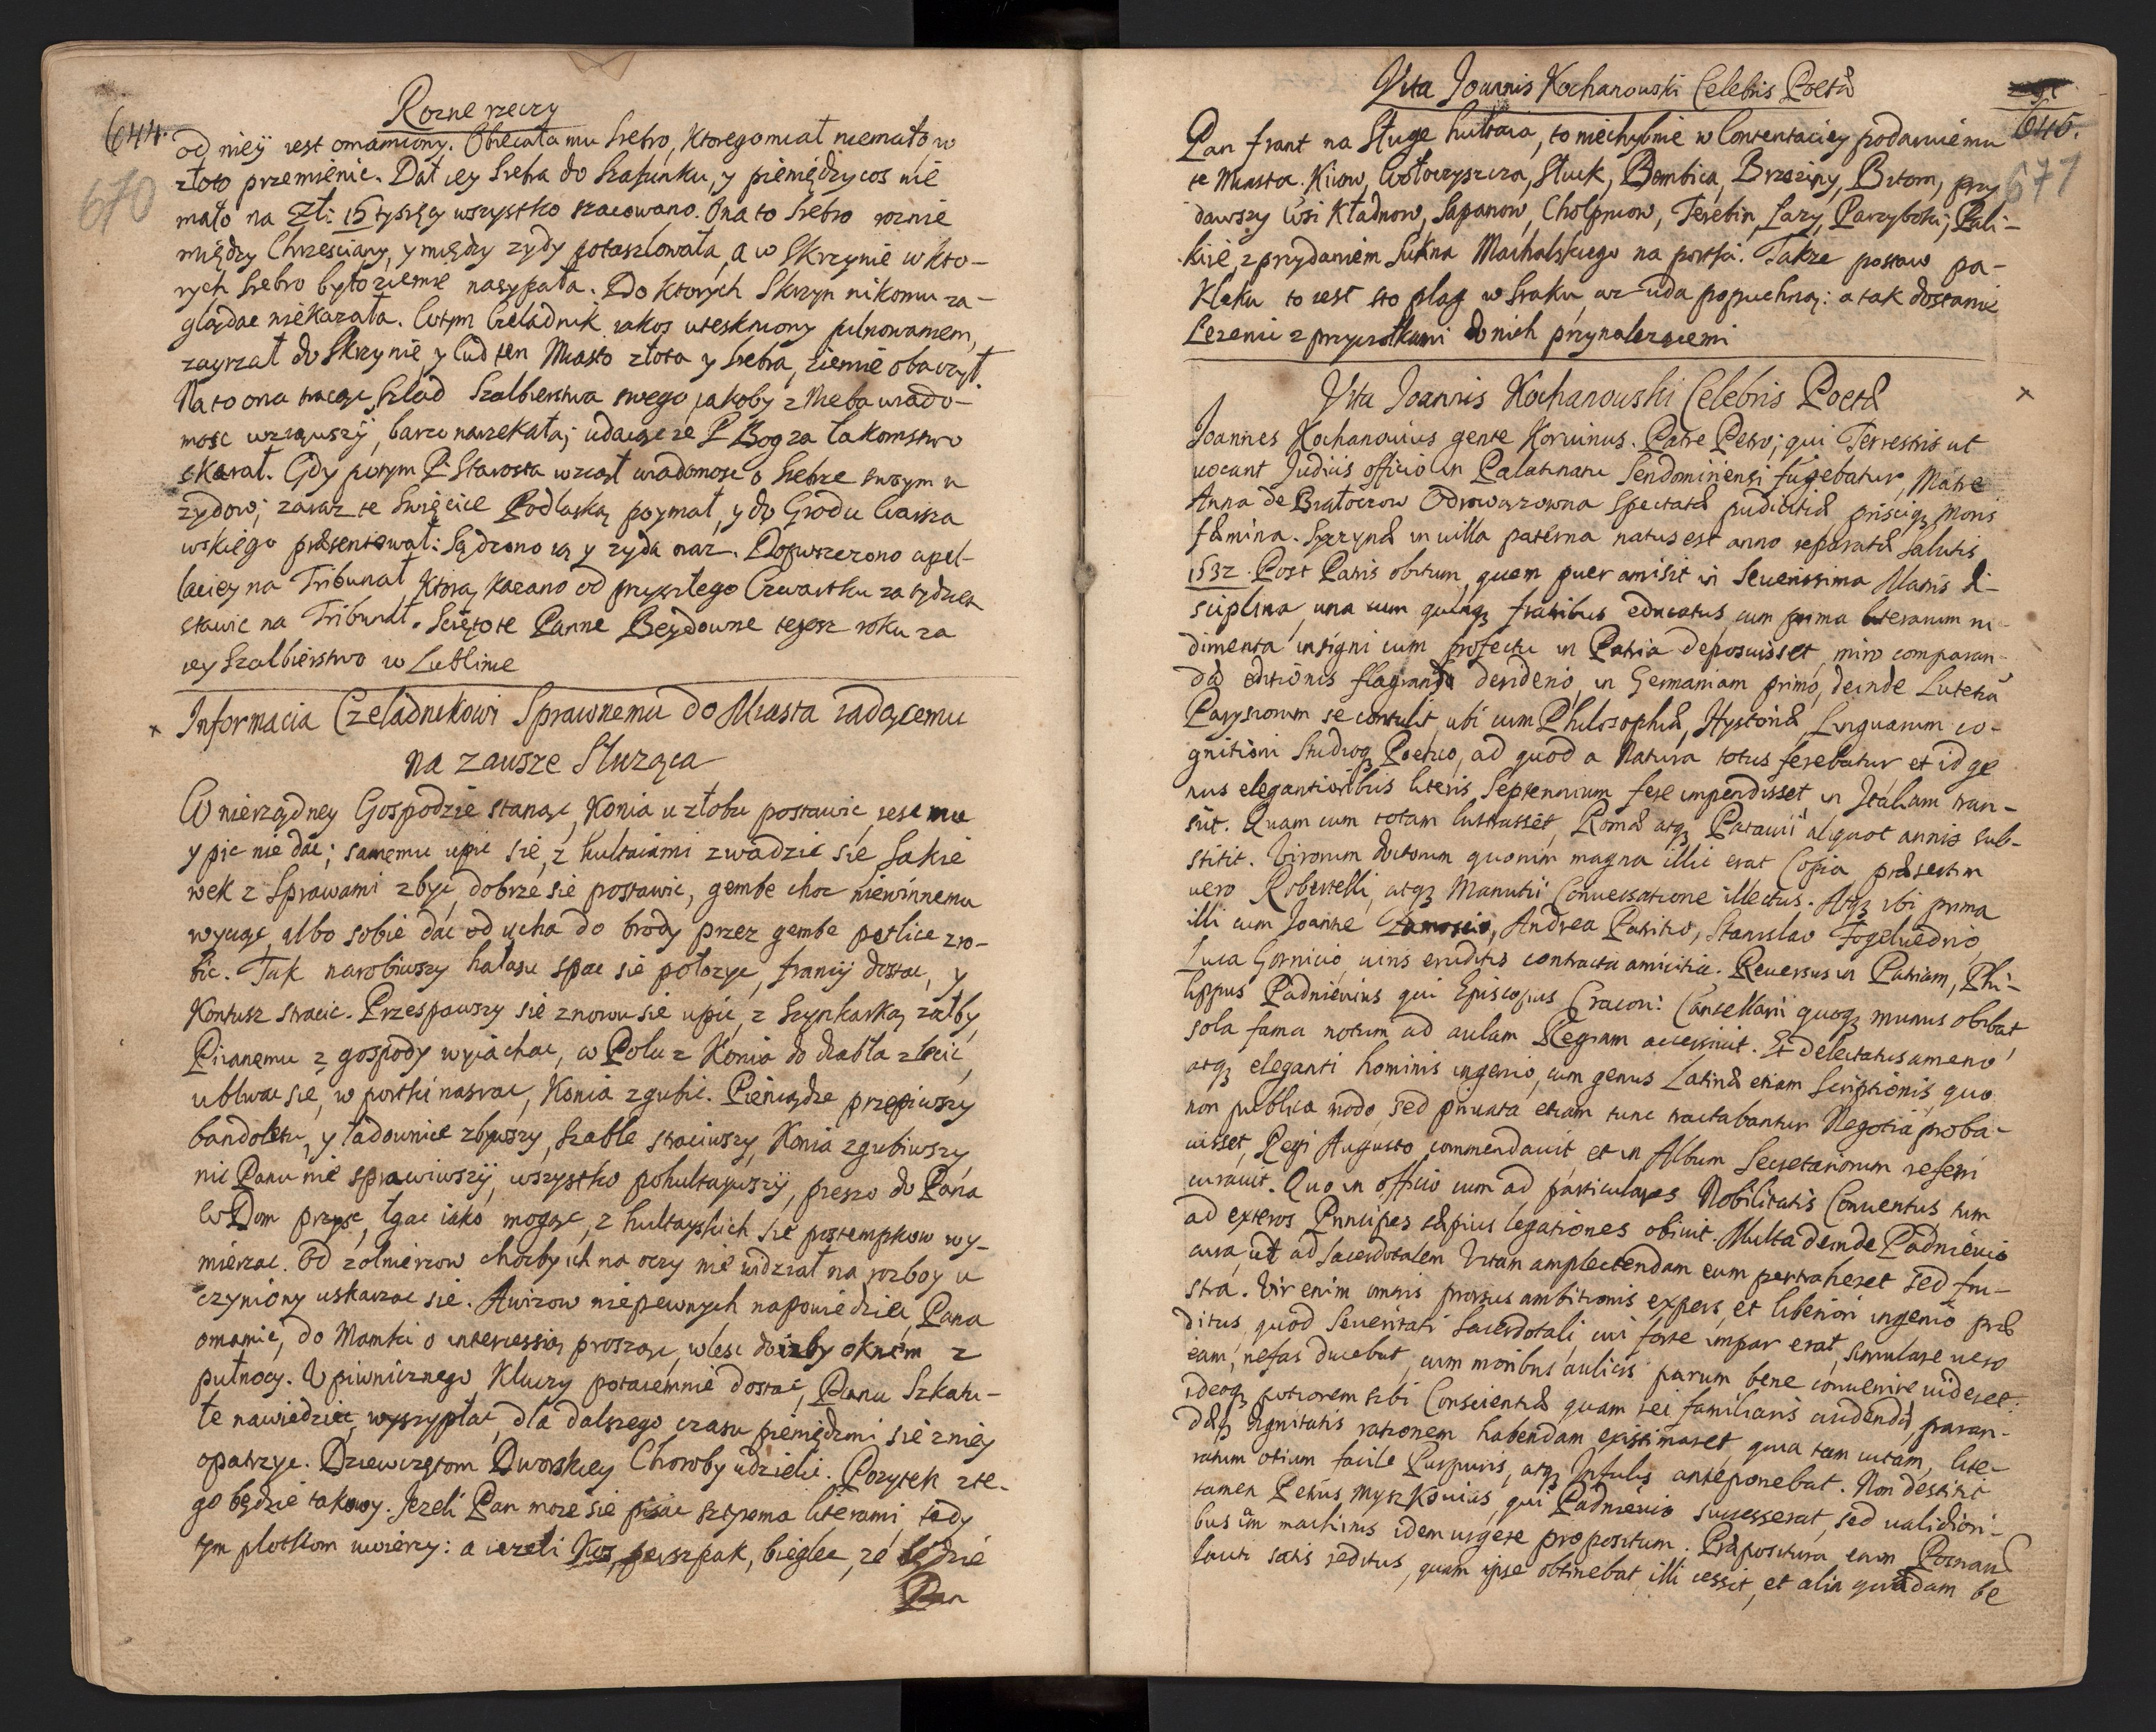 Rozne rzeczy
644.
670
od nieÿ iest omamiony. Obiecała mu Srebro, ktoregomiał niemało, w
złoto przemienic. Dał iey Srebra do Szafunku, y pieniędzy cos nie
mało na Zł: 15 tysięcy wszystko szacowano. Ona to Srebro roznie
między Chrzesciany, y między zydy potaszlowała, a w Skrzynie w kto-
rych Srebro było ziemie nasypała. Do ktorych Skrzyn nikomu za-
glądac niekazała. Wtym Czeladnik iakos uteskniony pilnowaniem,
zayrzał do Skrzynie, y Cud ten Miasto złota y Srebra, ziemie obaczył
Na to ona tracąc Szlad Szalbierstwa swego, jakoby z Nieba wiado-
mosc wziąwszÿ, barzo narzekała; udaiąc ze P Bog za łakomstwo
skarał. Gdy potym P Starosta wziął wiadomosc o Srebrze swoym u
zydow; zaraz te Swięcice Podlaską poymał, y do Grodu Warsza
wskiego præsentował: Sądzono ią y zyda oraz. Dopuszczono apel-
laciey na Tribunał, Ktorą kazano od przyszłego Czwartku za tydzien
stawic na Tribunał. Scięto te Panne Beydowne tegosz roku za
iey Szalbierstwo w Lublinie
× Informacia Czeladnikowi Sprawnemu do Miasta iadącemu
na zawsze Słurząca
W nierządney Gospodzie stanąc, Konia u złobu postawic, iesc mu
y pic nie dac; samemu upic się, z hultaiami zwadzic się Sakie
wek z Sprawami zbyc, dobrze się postawic, gembe choc niewinnemu
wyciąc, albo sobie dac od ucha do brody przez gembe petlice zro-
bic. Tak narobiwszy hałasu spac się połozyc, francÿ dostac, y
Kontusz stracic. Przespawszy się znowu się upic, z Szynkarką załby
Piianemu z gospody wyiachac, w Polu z Konia do diabła zlecic,
ublwac się, w portki nasrac, Konia zgubic. Pieniądze przepiwszy
bandoletu, y ładownice zbywszy, Szable straciwszy, Konia zgubiwszy
nic Panu nie sprawiwszÿ, wszystko pohultaywszÿ, pieszo do Pana
W Dom przysc, łgac iako mogąc, z hultayskich się postempkow wy-
mierzac. Od zołnierzow chocby ich na oczy nie widział na rozboy u
czyniony uskarzac się. Awizow niepewnych napowiedziec, Pana
omamic, do Mamki o intercessią prosząc, wlesc do izby oknem z
pułnocy. U piwnicznego Kluczy potaiemnie dostac, Panu Szkatu-
łe nawiedziec, wyszyplac, dla dalszego czasu pieniędzmi się z niey
opatrzyc. Dziewczętom Dworskiey Choroby udzielic. Pozytek z te-
go będzie takowy. Jezeli Pan moze się pisac sztyrema literami, tedy
tym plotkom uwierzy: a iezeli Kos, szpak, bieglec, ze będzie
Pan
Vita Joannis Kochanouski Celebris Poetæ
645.
671
Pan frant na Sługe hultaia, to niechybnie w Contentaciey podaruiemu
te Miasta. Kiiow, Wołoczyszcza, Słuck, Dembica, Brzeziny, Bitom, przy
dawszy Wsi Kładnow, Sapanow, Chołpniow, Terebin, Lazy, Parzyboki, Pali-
kiie, z przydaniem Sukna Machalskiego na portki. Takze postaw pa-
Klaku to iest sto plag w Sraku, az uda popuchną: a tak dostanie
Lezenie z przysiołkami do nich przynalezącemi
Vita Joannis Kochanouski Celebris Poetæ ×
Joannes Kochanouius gente Koruinus. Patre Petro; qui Terrestris ut
uocant Judicis officio in Palatinatu Sendomiriensi fũgebatur, Matre
Anna de Białoczow Odrowązowna Spectatæ pudicitiæ, prisciqʒ moris
fæmina. Syzynæ in uilla paterna natus est anno reparatæ Salutis
1532. Post Patris obitum, quem puer amisit in Seuerissima Matris di-
sciplina, una cum quinqʒ fratribus educatus, cum prima literarum ru-
dimenta insigni cum profectu in Patria deposuisset, miro comparan-
dæ editionis flagrando desiderio, in Germaniam primo, deinde Lutetiã
Parysiorum se contulit, ubi cum Philosophiæ, Hystoriæ, Linguarum co-
gnitioni Studioqʒ Poetico, ad quod a Natura totus ferebatur, et id ge
nus elegantioribus literis Septennium fere impendisset, in Italiam tran-
siit. Quam cum totam lustrasset, Romæ atqʒ Patauii aliquot annis sub-
stitit. Virorum doctorum quorum magna illic erat Copia præsertim
uero Robertelli, atqʒ Manutii Conuersatione illectus. Atqʒ ibi prima
illi cum Joanne Zamoscio, Andrea Patricio, Stanislao Fogeluedrio,
Luca Gornicio, uiris eruditis contracta amicitia. Reuersus in Patriam, Phi-
lippus Padnieuius qui Episcopus Cracou: Cancellarii quoqʒ munus obibat
sola fama notum ad aulam Regiam acciuit. Et delectatus ameno,
atqʒ eleganti hominis ingenio, cum genus Latinæ etiam Scriptionis, quo
non publica modo, sed priuata etiam tunc tractabantur Negotia proba-
uisset, Regi Augusto commendauit, et in Album Secretariorum referri
curauit. Quo in officio cum ad particulares Nobilitatis Conuentus tum
ad exteros Principes sæpius legationes obiuit. Multa deinde Padnieuio
cura, ut ad sacerdotalem Vitam amplectendam eum pertraheret sed fru-
stra. Vir enim omnis prorsus ambitionis expers, et liberiori ingenio præ
ditus, quod Seueritati Sacerdotali, cui forte impar erat, simulare uero
eam, nefas ducebat, cum moribus aulicis parum bene conuenire uideret.
ideoqʒ potiorem sibi Conscientiæ quam rei familiaris augendæ, paran-
dæqʒ dignitatis rationem habendam existimaret, quia tam uitam, lite-
ratum otium facile Purpuris, atqʒ Infulis anteponebat. Non destitit
tamen Petrus Myszkouius, qui Padnieuio successerat, sed ualidiori-
bus iam machinis idem urgere propositum. Præposituram enim Posnan
lauti satis reditus, quam ipse obtinebat, illi cessit, et alia quædam be